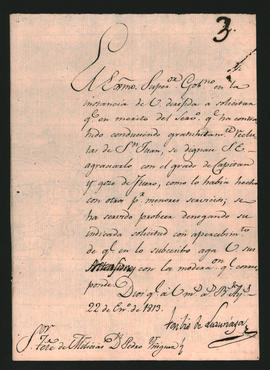 3.
El Exmo. Supor. Gobno. en la
instancia de V. dirijida a solicitar
qe. en merito del servo. qe. ha contra
hido conduciendo gratuitamte. Reclu
tas de Sn. Juan, se dignase S.E.
agraciarlo con el grado de Capitan
y goze de fuero, como lo habia hecho
con otros pr. menores servicios; se
ha servido proveer denegando su
indicada solicitud con apercebimto.
de qe. en lo subcesibo aga sus
con la moderaon. qe. corres
ponde.
Dios gue. a Vm. as.
22 de Eno. de 1813.
Toribio de Luzuriaga
Sor.
de Milicias Dn. Pedro